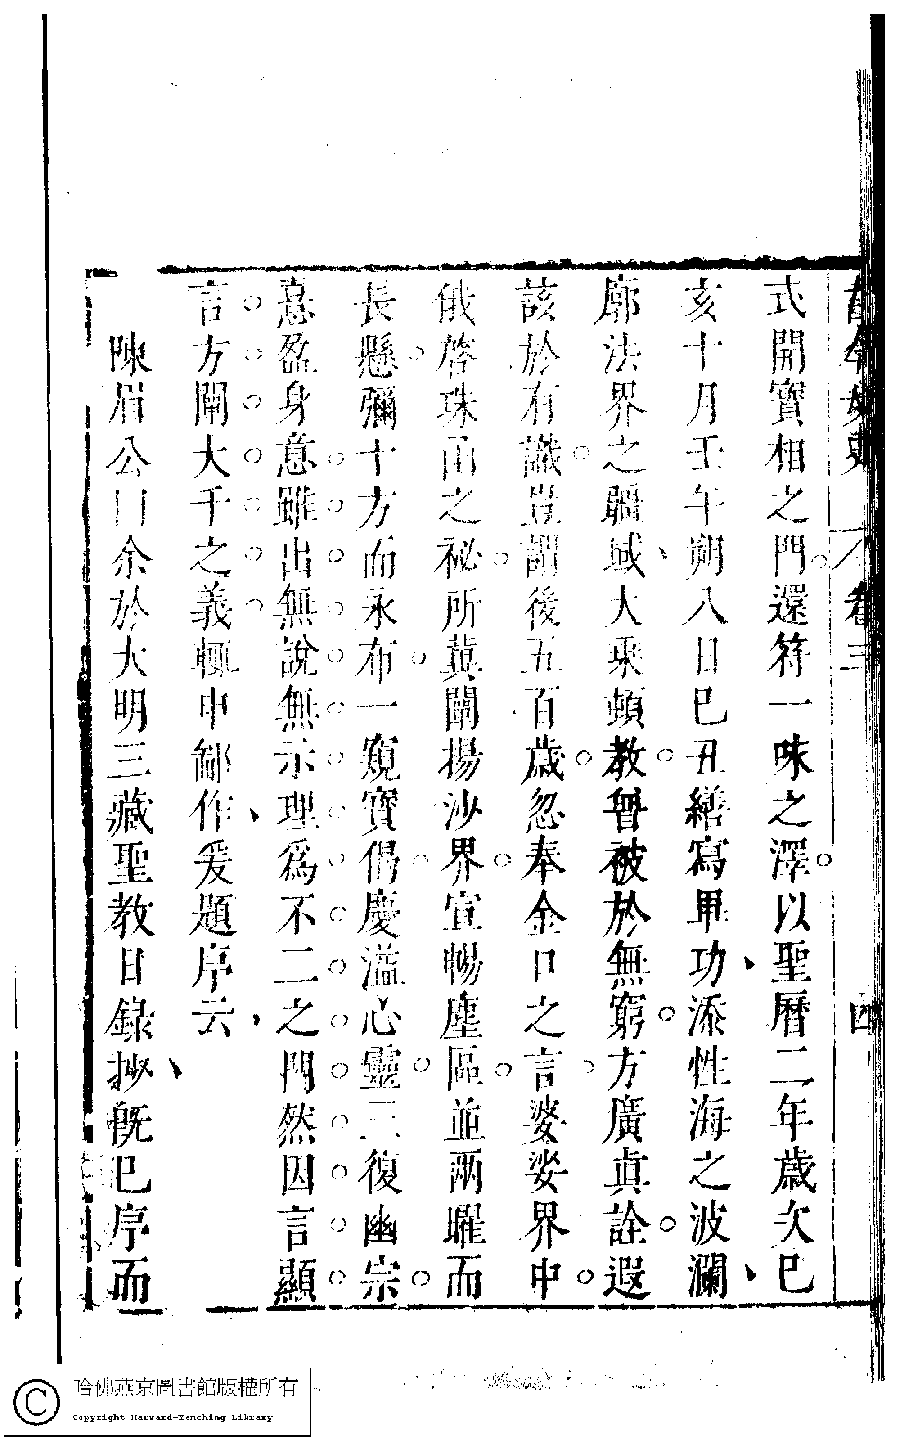 古今女史 卷三 四
式開寶相之門還符一味之澤以聖曆二年歲次已
亥十月壬午朔八日巳丑繕寫畢功添性海之波瀾
廓法界之疆域大乘頓教普被於無窮方廣真詮遐
該於有識豈謂後五百歲忽奉金口之言娑婆界中
俄啓珠函之祕所冀闡揚沙界宣暢塵區並兩曜而
長懸彌十方而永布一窺寶偈慶溢心靈三復幽宗
喜盈身意雖出無說無示理爲不二之門然因言顯
言方闡大千之義輒申鄙作爰題序云
陳眉公曰余於大明三藏聖教目錄抄旣巳序而
哈佛燕京圖書館版權所有
Copyright Harvard-Yenching Library